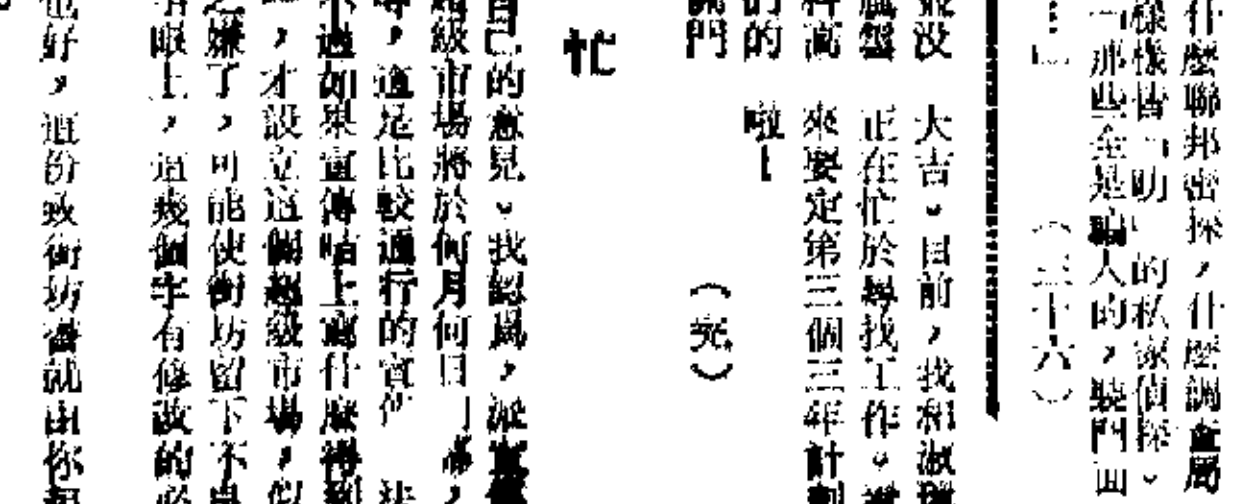 什麼聯邦密探，什麼調查局
樣樣皆「叻」的私家偵探。
「那些全是騙人的，裝門面
…」
（三十六）
並没　大吉。目前，我和淑
盤　正在忙於尋找工作。
科高　來要定第三個三年計劃
的的　啦！
門　（完）
忙
自己的意見。我認爲，派
超級市場將於何月何日
，這是比較通行的宣傳
不過如果宣傳咭上寫什麽得到
，才設立這個超級市場，似
之嫌了，可能使街坊留下不良
眼上，這幾個字有修改的必
也好，這份致街坊書就由你起